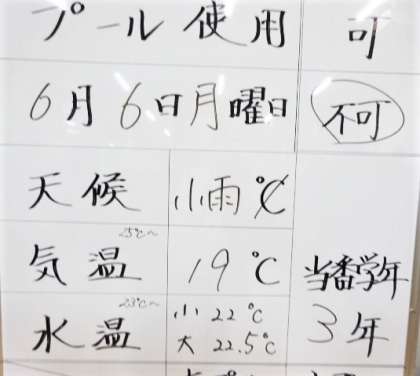 プール使用 可
6月6日月曜日 不可
天候 小雨℃
25℃～
気温 19℃
23℃～
水温 小 22℃
大 22.5℃
当番学年
3年